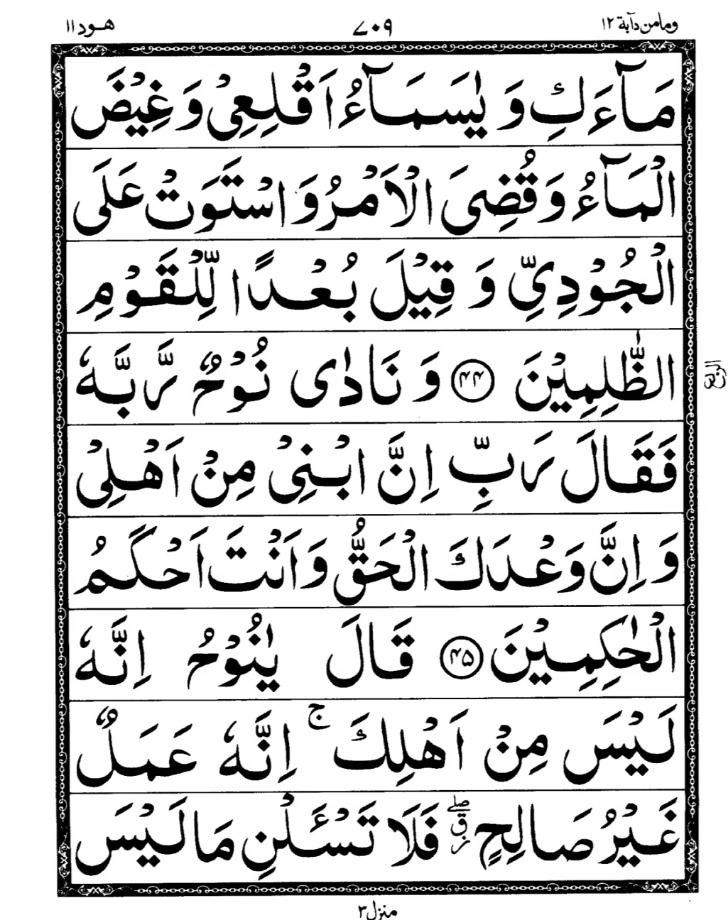 ومامن دآبة ۱۲ ۷۰۹ هود ۱۱
مَآءَكِ وَ یٰسَمَآءُ اَقْلِعِیْ وَ غِیْضَ
الْمَآءُ وَ قُضِیَ الْاَمْرُ وَ اسْتَوَتْ عَلَی
الْجُوْدِیِّ وَ قِیْلَ بُعْدًا لِّلْقَوْمِ
الظّٰلِمِیْنَ ﴿۴۴﴾ وَ نَادٰی نُوْحٌ رَّبَّهٗ
فَقَالَ رَبِّ اِنَّ ابْنِیْ مِنْ اَهْلِیْ
وَ اِنَّ وَعْدَكَ الْحَقُّ وَ اَنْتَ اَحْكَمُ
الْحٰكِمِیْنَ ﴿۴۵﴾ قَالَ یٰنُوْحُ اِنَّهٗ
لَیْسَ مِنْ اَهْلِكَ ۚ اِنَّهٗ عَمَلٌ
غَیْرُ صَالِحٍ ۖ٘ فَلَا تَسْـَٔلْنِ مَا لَیْسَ
الربع
منزل ۳